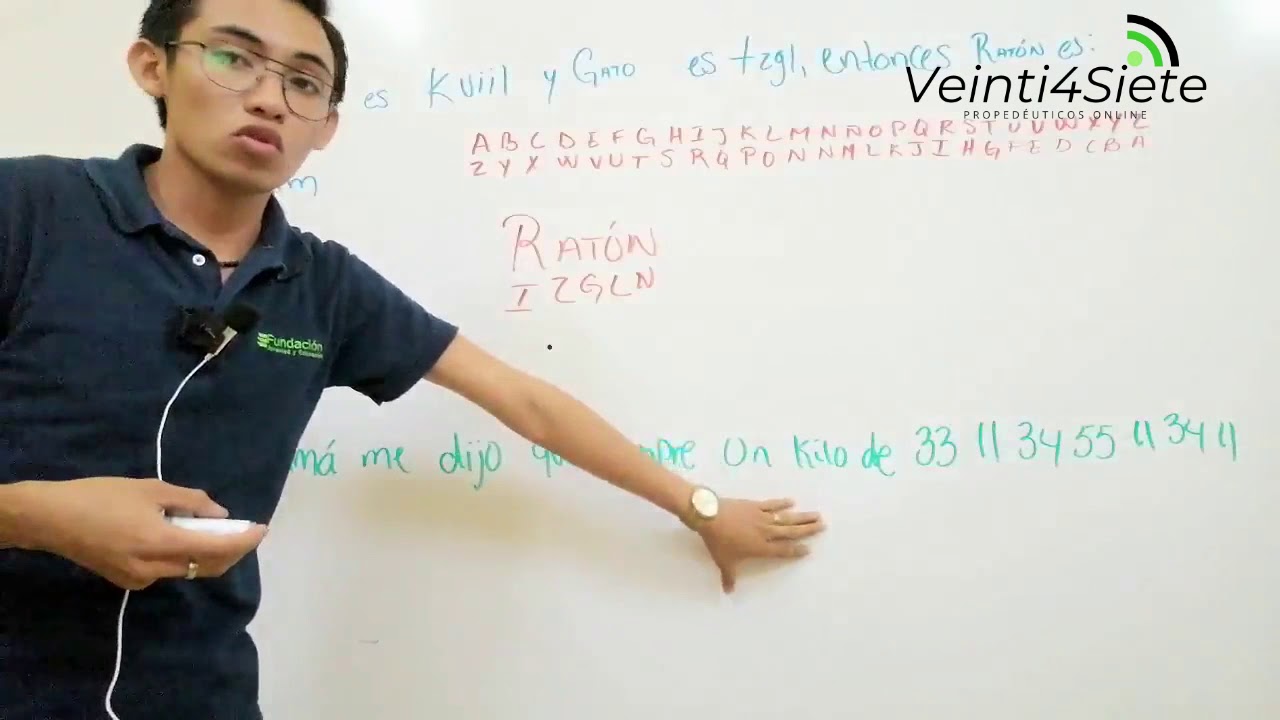 es Kviil y GATO es tzgl, entonces RATÓN es:
Veinti4Siete
PROPEDÉUTICOS ONLINE
A B C D E F G H I J K L M N Ñ O P Q R S T U V W X Y Z
Z Y X W V U T S R Q P O N N M L K J I H G F E D C B A
RATÓN
I Z G L N
Fundación
má me dijo un kilo de 33 11 34 55 11 34 11